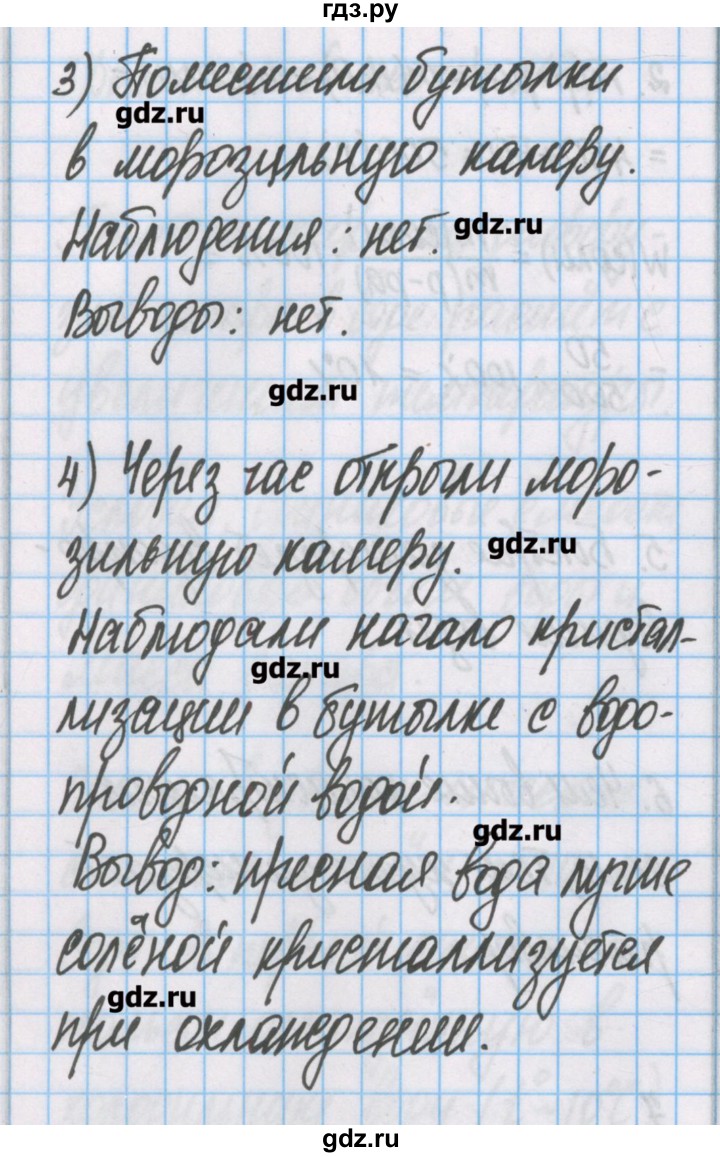 гдз.ру
3) Поместили бутылки
gdz.ru
в морозильную камеру.
Наблюдения: нет.
gdz.ru
Выводы: нет.
gdz.ru
4) Через час открыли моро-
зильную камеру.
gdz.ru
Наблюдали начало кристал-
gdz.ru
лизации в бутылке с водо-
проводной водой.
gdz.ru
Вывод: пресная вода лучше
солёной кристаллизуется
gdz.ru
при охлаждении.
gdz.ru